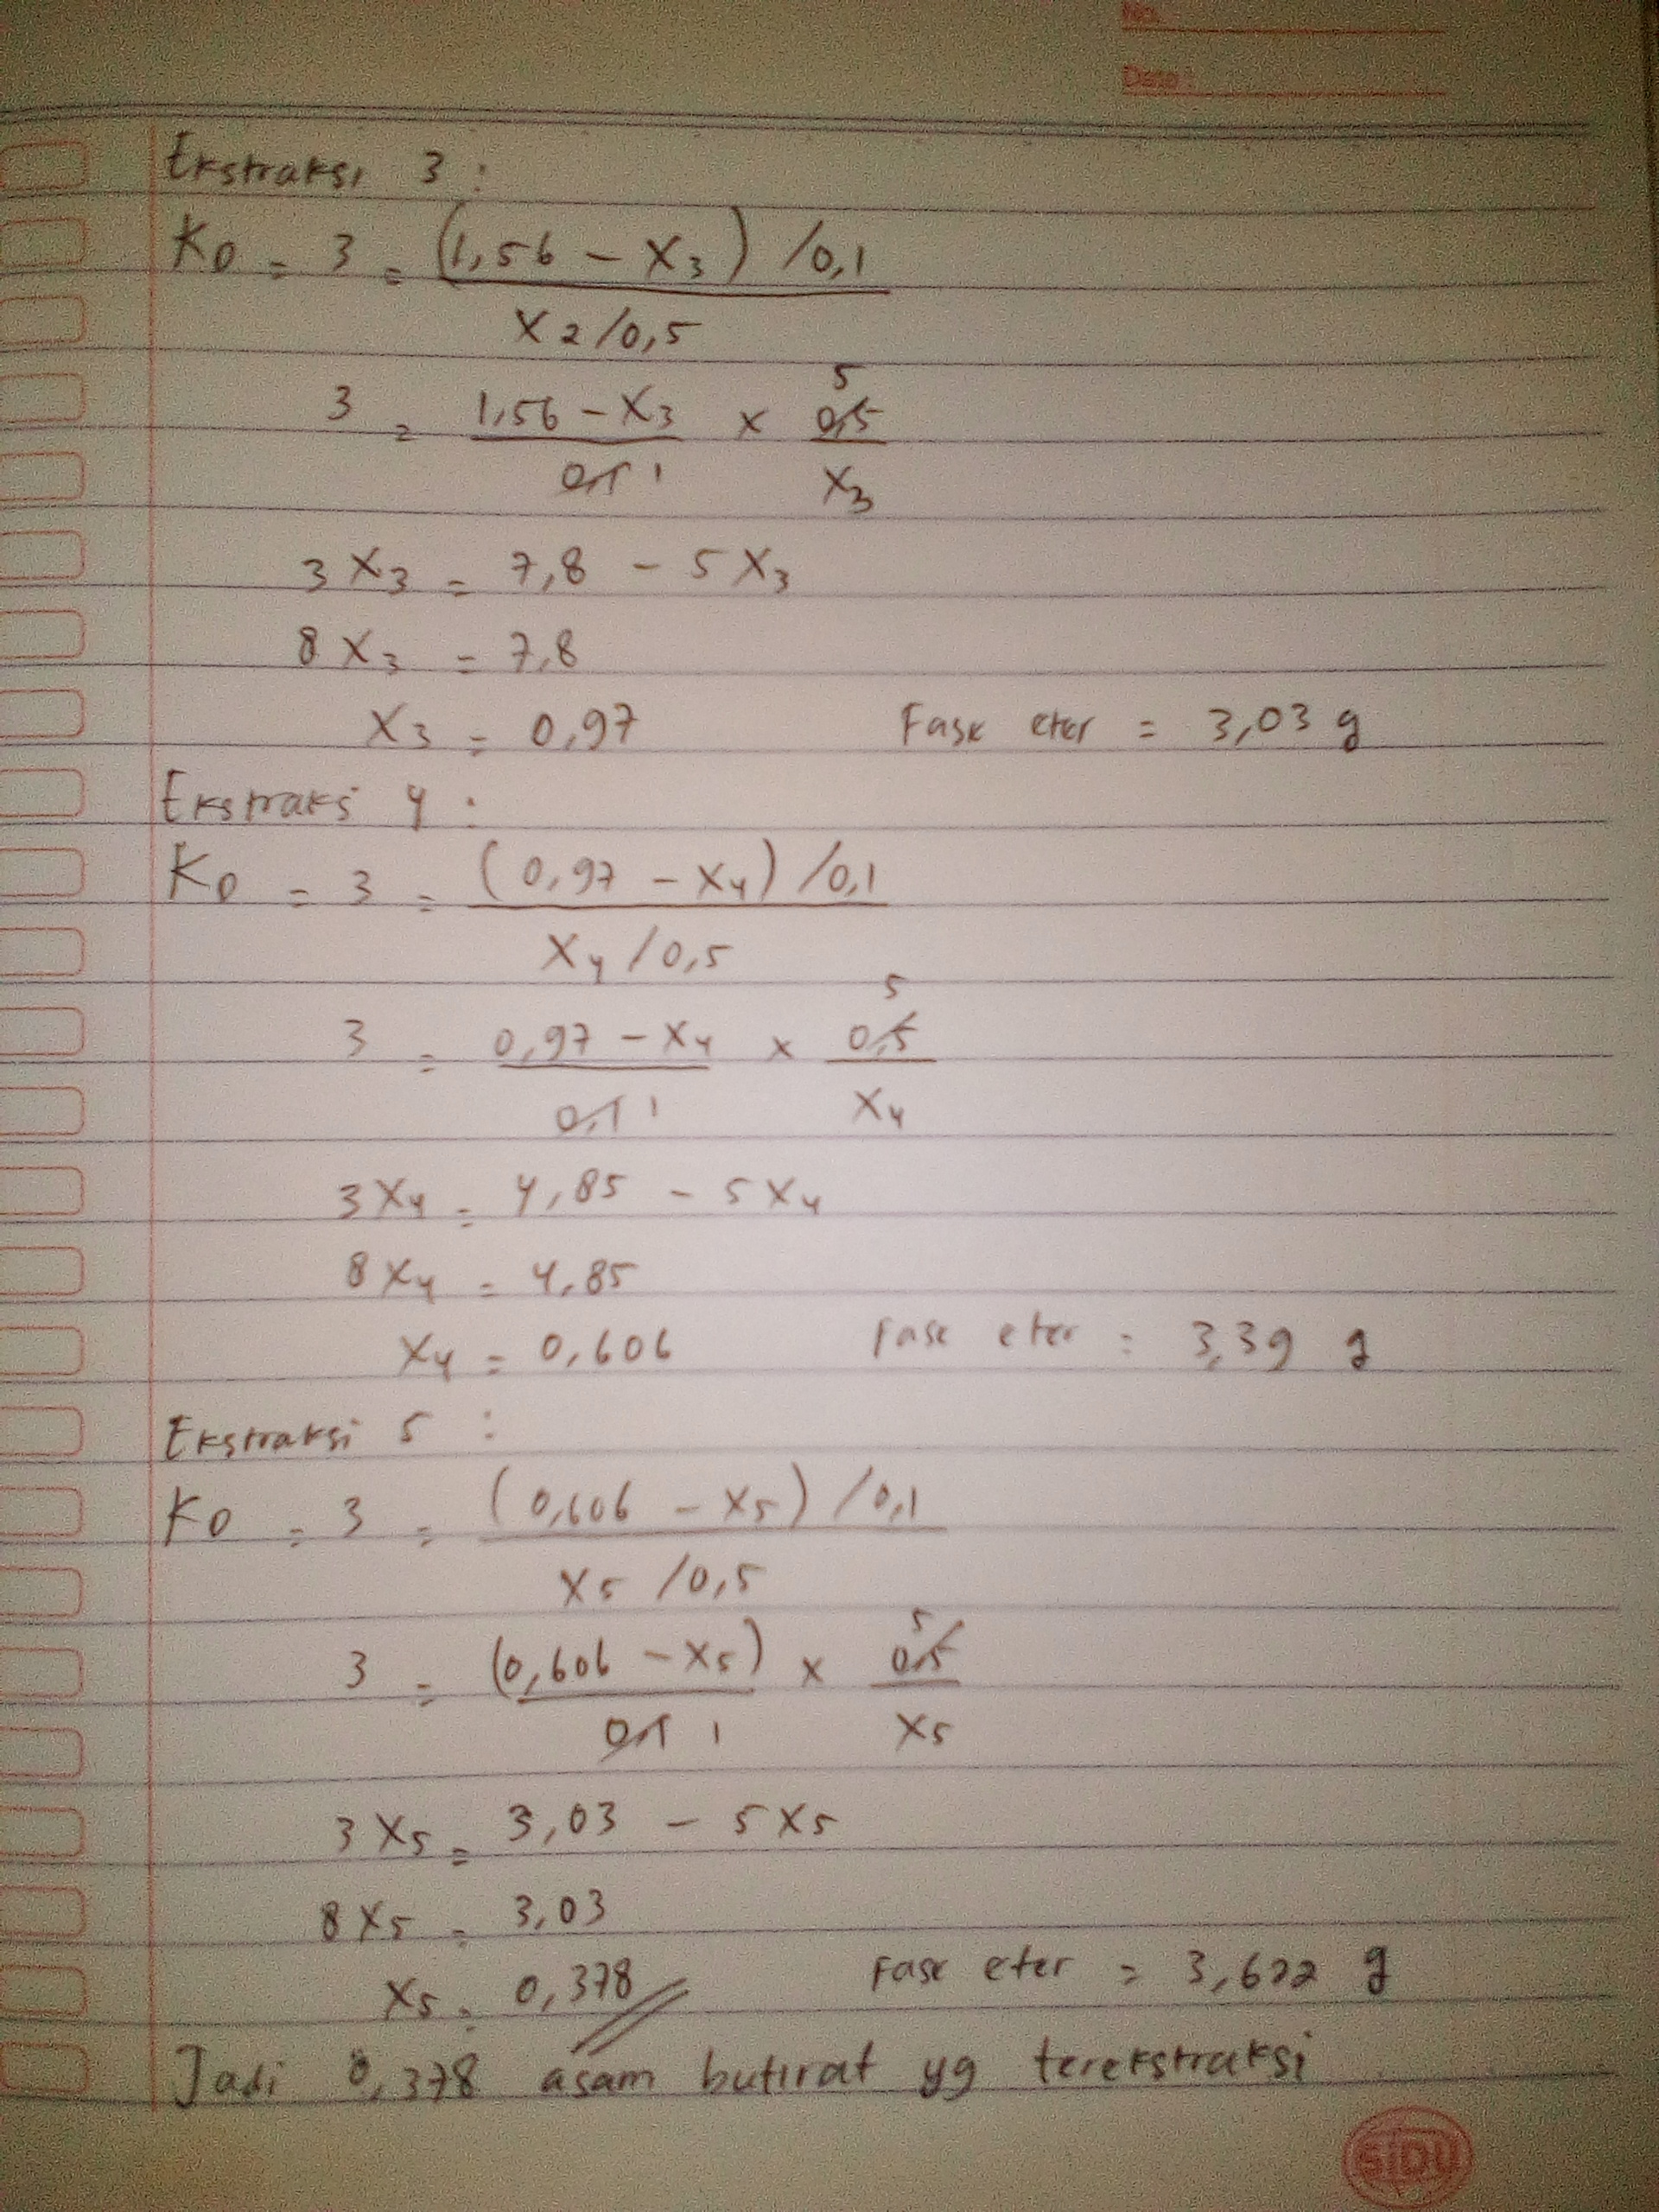 No.
Date :
Ekstraksi 3 :
KD = 3 = (1,56 - X3) /0,1
X2/0,5
5
3 = 1,56 - X3 x 0,5
0,1 1 X3
3X3 = 7,8 - 5X3
8X3 = 7,8
X3 = 0,97 Fase eter = 3,03 g
Ekstraksi 4 :
KD = 3 = (0,97 - X4) /0,1
X4/0,5
5
3 = 0,97 - X4 x 0,5
0,1 1 X4
3X4 = 4,85 - 5X4
8X4 = 4,85
X4 = 0,606 Fase eter = 3,39 g
Ekstraksi 5 :
KD = 3 = (0,606 - X5) /0,1
X5/0,5
5
3 = (0,606 - X5) x 0,5
0,1 1 X5
3X5 = 3,03 - 5X5
8X5 = 3,03
X5 = 0,378 Fase eter = 3,622 g
Jadi 0,378 asam butirat yg terekstraksi
SIDU